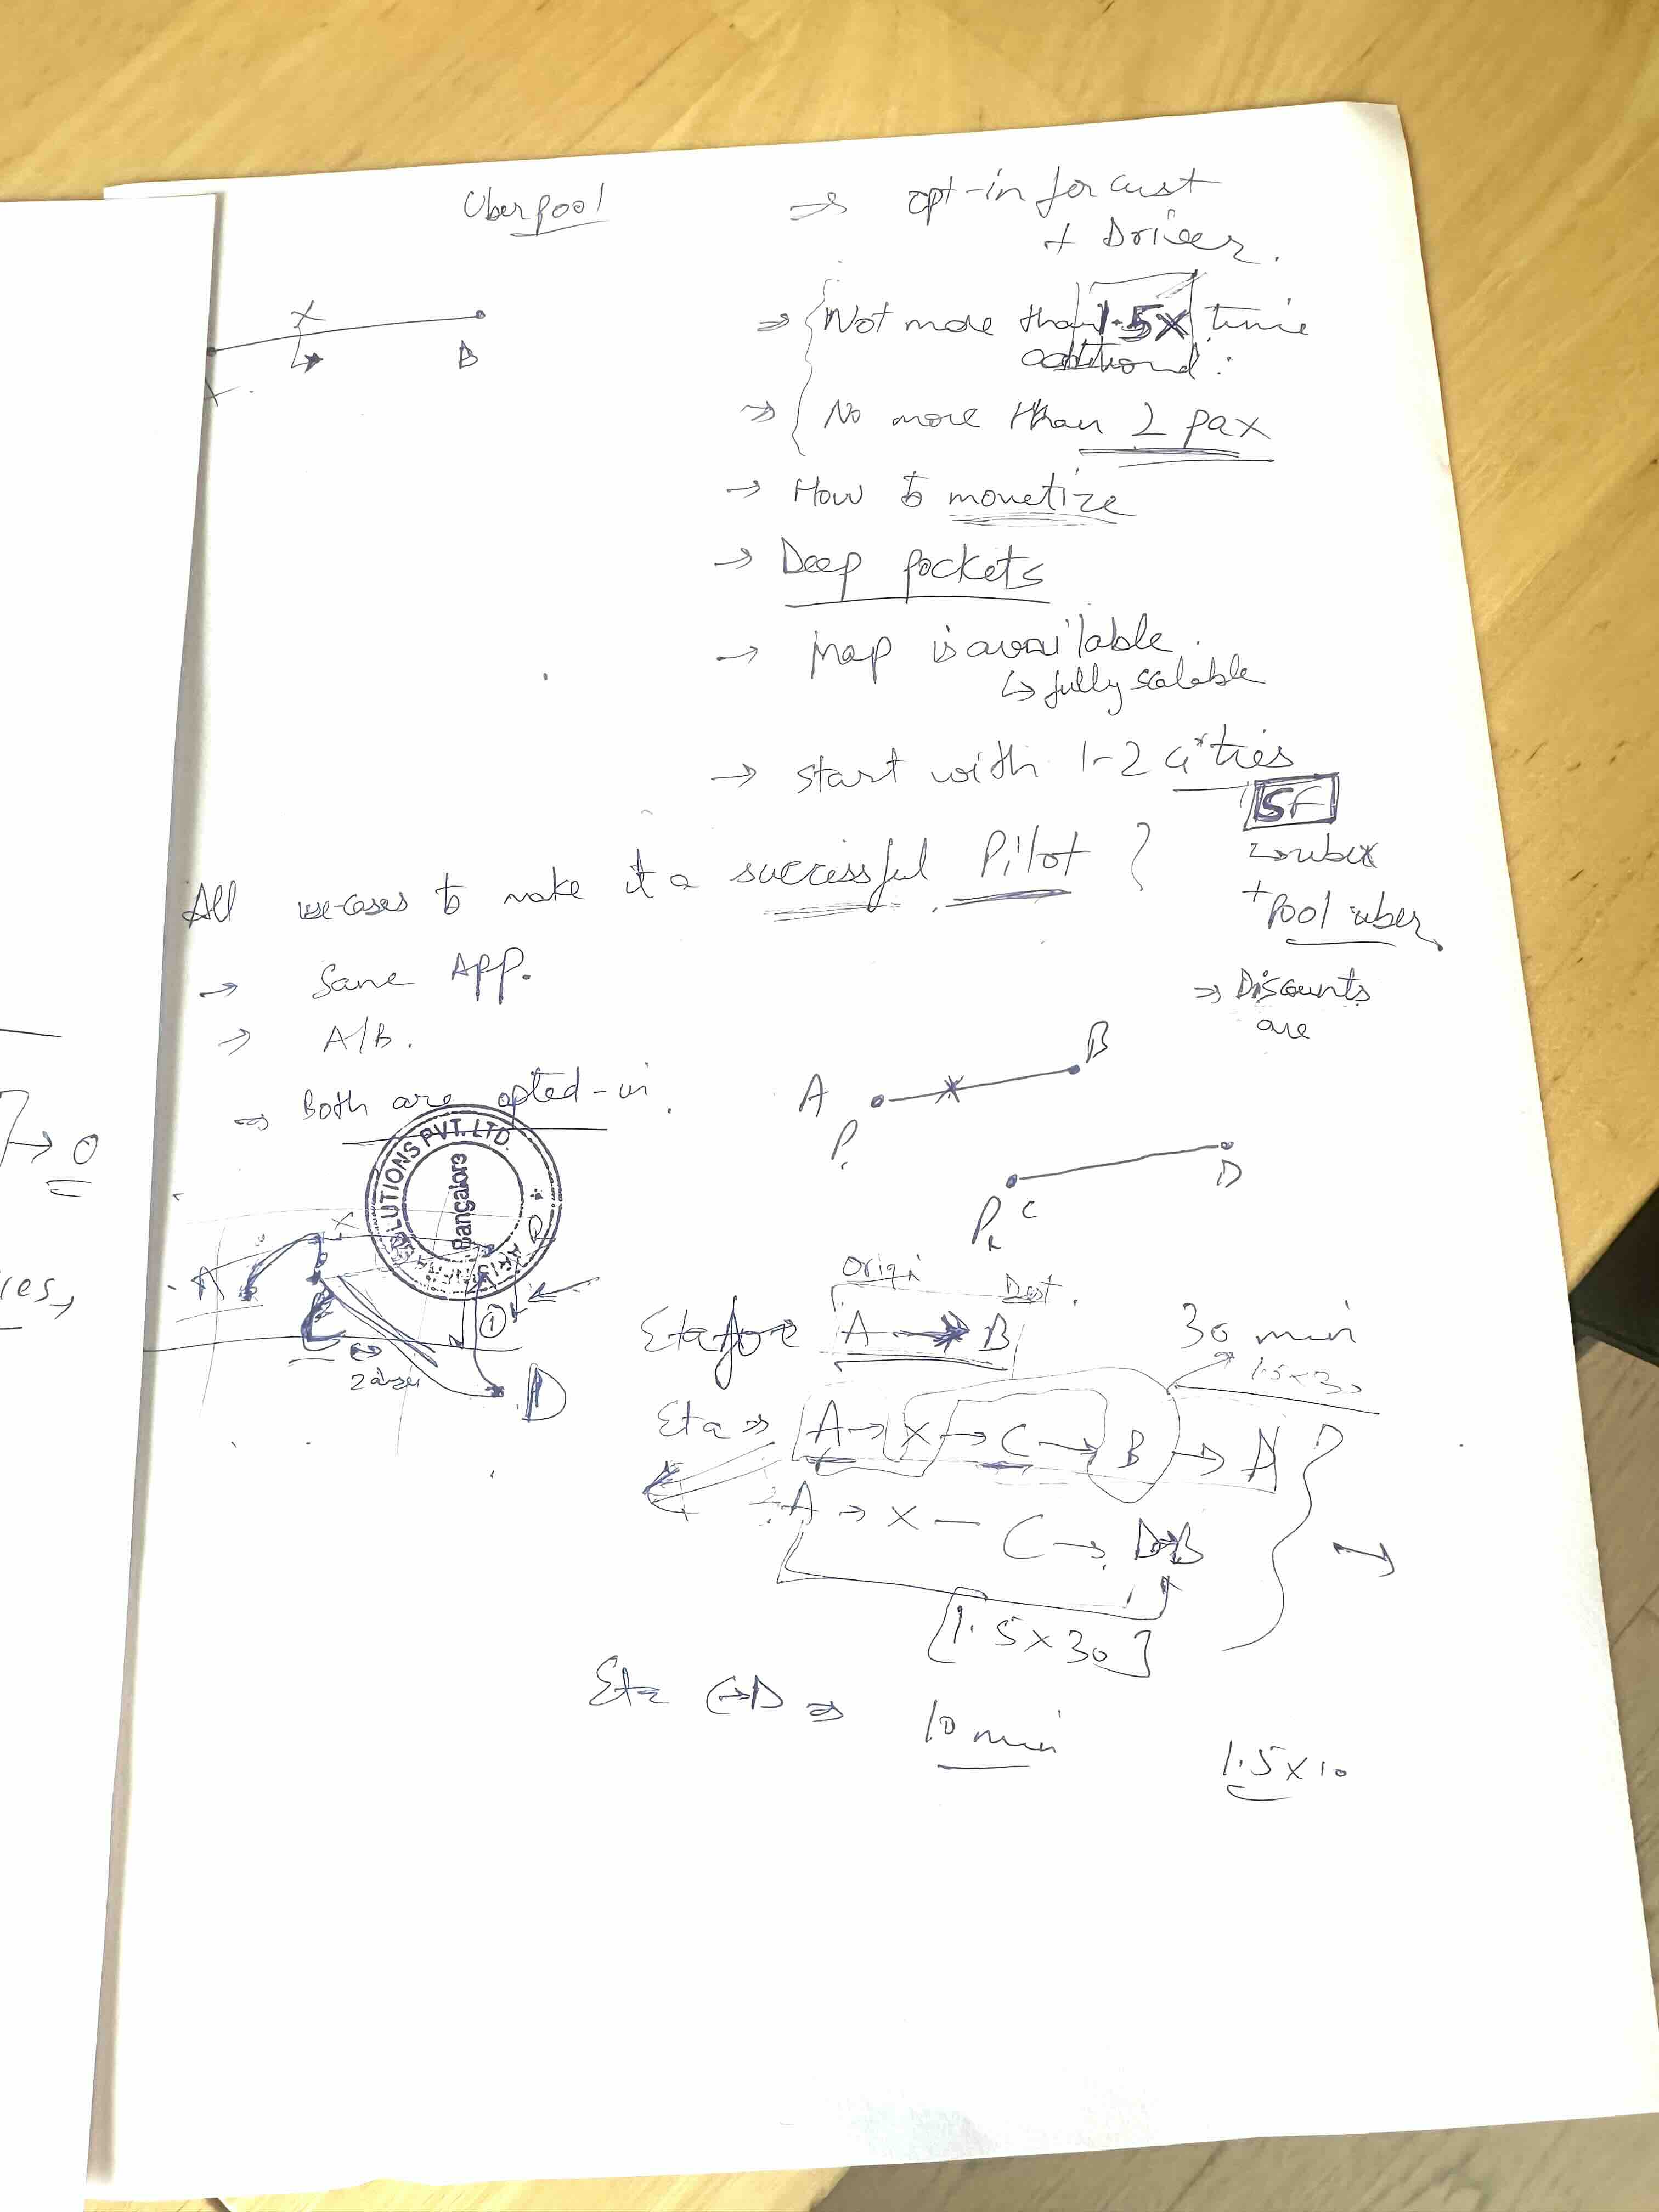 Uberpool
⇒ opt-in for cust
+ Driver.
X
B
⇒ Not more than 1.5x time
additional.
⇒ No more than 2 pax
→ How to monetize
→ Deep pockets
→ Map is available.
↳ fully scalable
→ start with 1-2 cities
SF
+ Pool uber
⇒ Discounts
are
All use-cases to make it a successful Pilot ?
→ Same App.
→ A/B.
⇒ Both are opted-in.
A B
P.
C D
LUTIONS PVT. LTD.
Bangalore
X
A
①
D
→ 0
ies,
Origi Dest.
Eta for A → B 30 min
1.5x30
Eta ⇒ A → X → C → B → D
A → X — C → D→B →
[1.5 x 30]
Eta C→D ⇒ 10 min 1.5x10